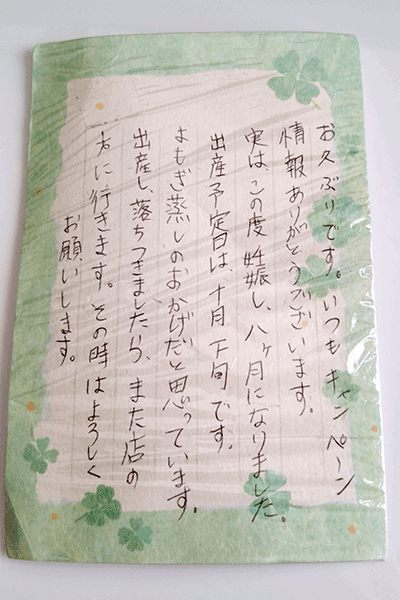 お久ぶりです。いつもキャンペーン
情報ありがとうございます。
実は、この度妊娠し、八ヶ月になりました。
出産予定日は、十月下旬です。
よもぎ蒸しのおかげだと思っています。
出産し、落ちつきましたら、また店の
方に行きます。その時はよろしく
お願いします。